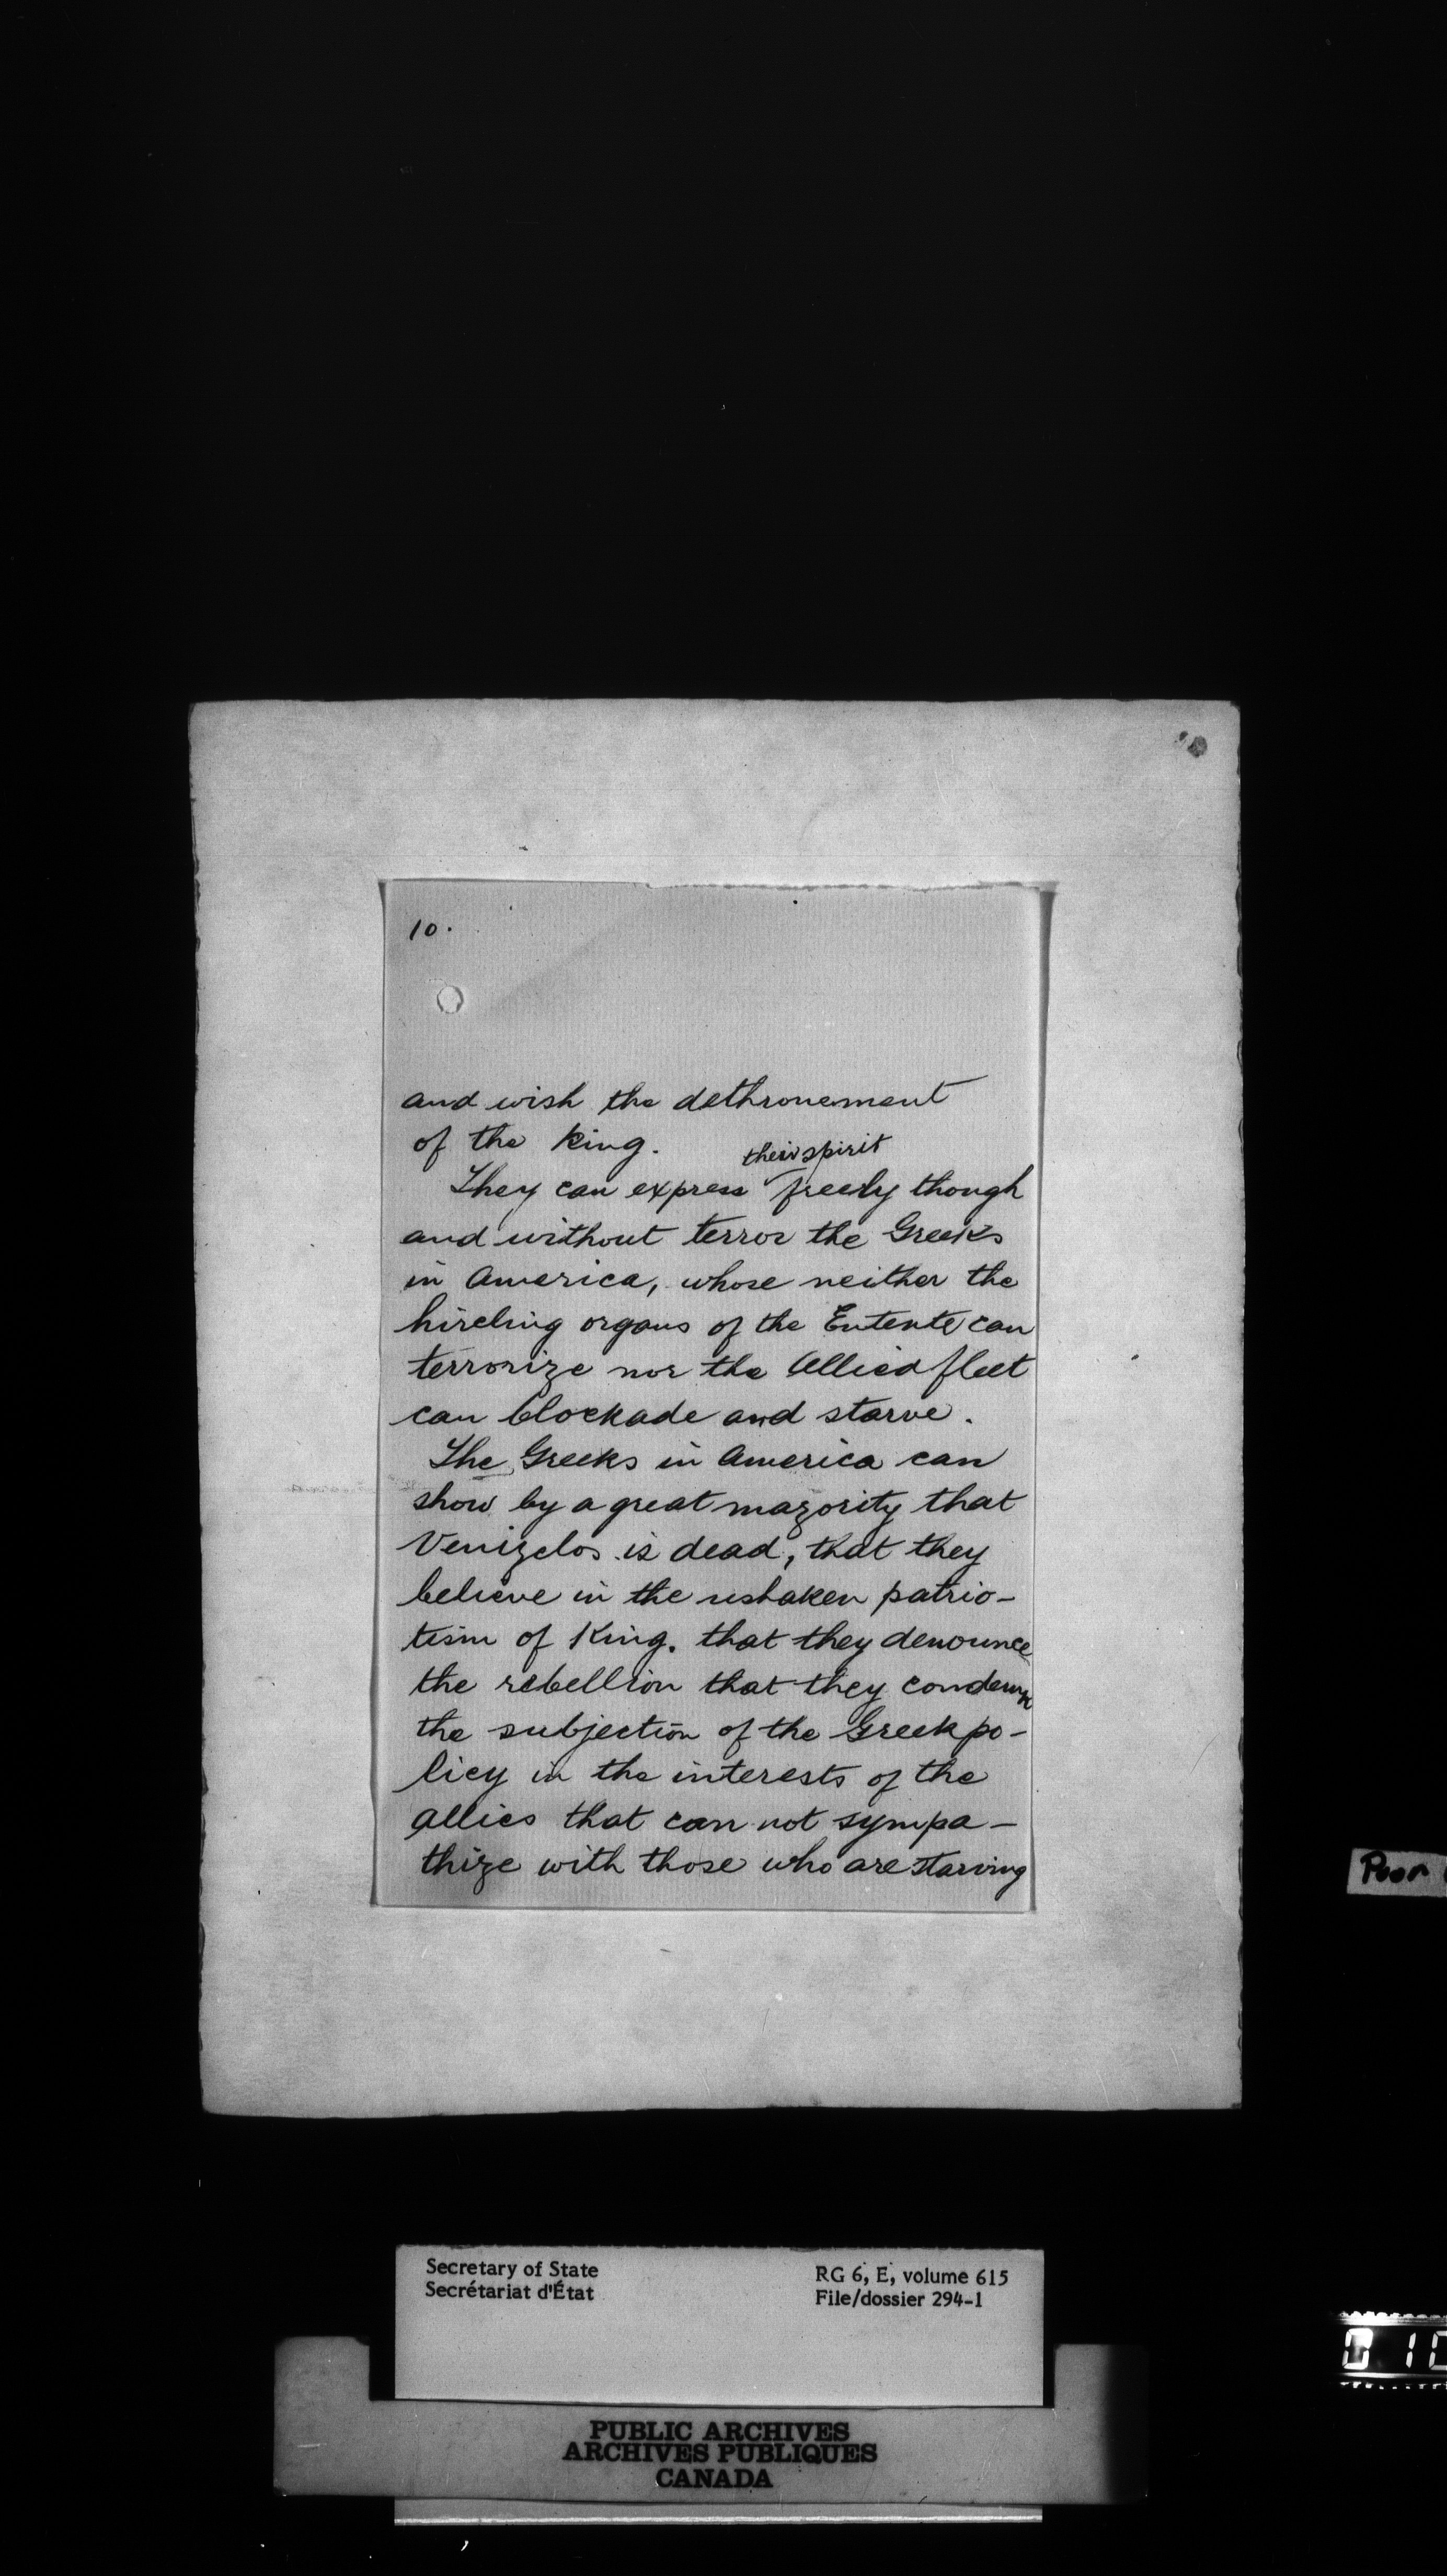 10.
and wish the dethronement
of the King.
their spirit
They can express freely though
and without terror the Greeks
in America, whose neither the
hireling organs of the Entente can
terrorize nor the Allied fleet
can blockade and starve.
The Greeks in America can
show by a great mazority that
Venizelos is dead, that they
believe in the ushaken patrio-
tism of King. that they denounce
the rebellion that they condemn
the subjection of the Greek po-
licy in the interests of the
allies that can not sympa-
thize with those who are starving
Poor
Secretary of State
Secrétariat d'État
RG 6, E, volume 615
File/dossier 294-1
PUBLIC ARCHIVES
ARCHIVES PUBLIQUES
CANADA